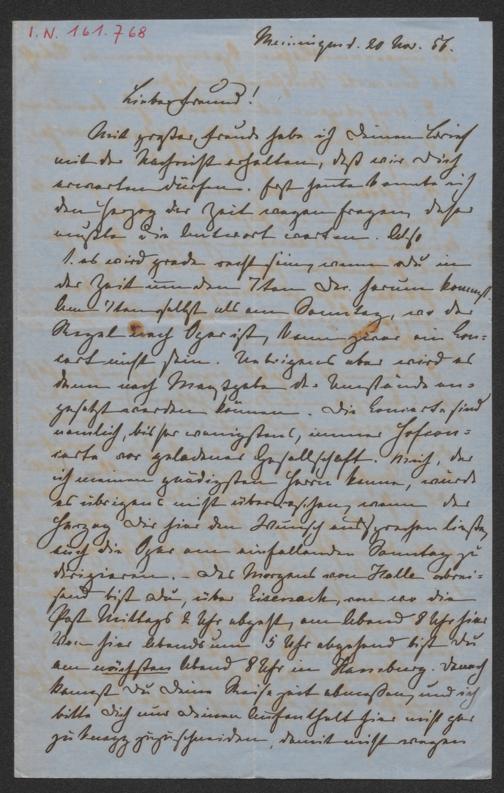 I.N. 161.768
Meiningen d. 20 Nov. 56.
Lieber Freund!
Mit großer Freude habe ich Deinen Brief
mit der Nachricht erhalten, daß wir Dich
erwarten dürfen. Erst heute konnte ich
den Herzog der Zeit wegen fragen, daher
mußte die Antwort warten. Also
1. es wird grade recht sein, wenn du in
der Zeit um den 7ten Dec. herum kommst.
Am 7ten selbst als am Sonntag, wo der
Regel nach Oper ist, kann zwar ein Con-
cert nicht sein. Uebrigens aber wird es
dann nach Maasgabe der Umstände an-
gesetzt werden können. Die Concerte sind
nemlich, bisher wenigstens, immer Hofcon-
certe vor geladener Gesellschaft. Mich, der
ich meinen gnädigsten Herrn kenne, würde
es übrigens nicht überraschen, wenn der
Herzog Dir hier den Wunsch aussprechen ließe,
auch die Oper am einfallenden Sonntag zu
dirigieren. – Des Morgens von Halle abrei-
send bist Du, über Eisenach, von wo die
Post Mittags 2 Uhr abgeht, am Abend 8 Uhr hier
Von hier Abends um 5 Uhr abgehend bist Du
am nächsten Abend 8 Uhr in Hamburg. Danach
kannst Du Deine Reisezeit abmessen, und ich
bitte Dich nur Deinen Aufenthalt hier nicht gar
zu knapp zuzuschneiden, damit nicht wegen